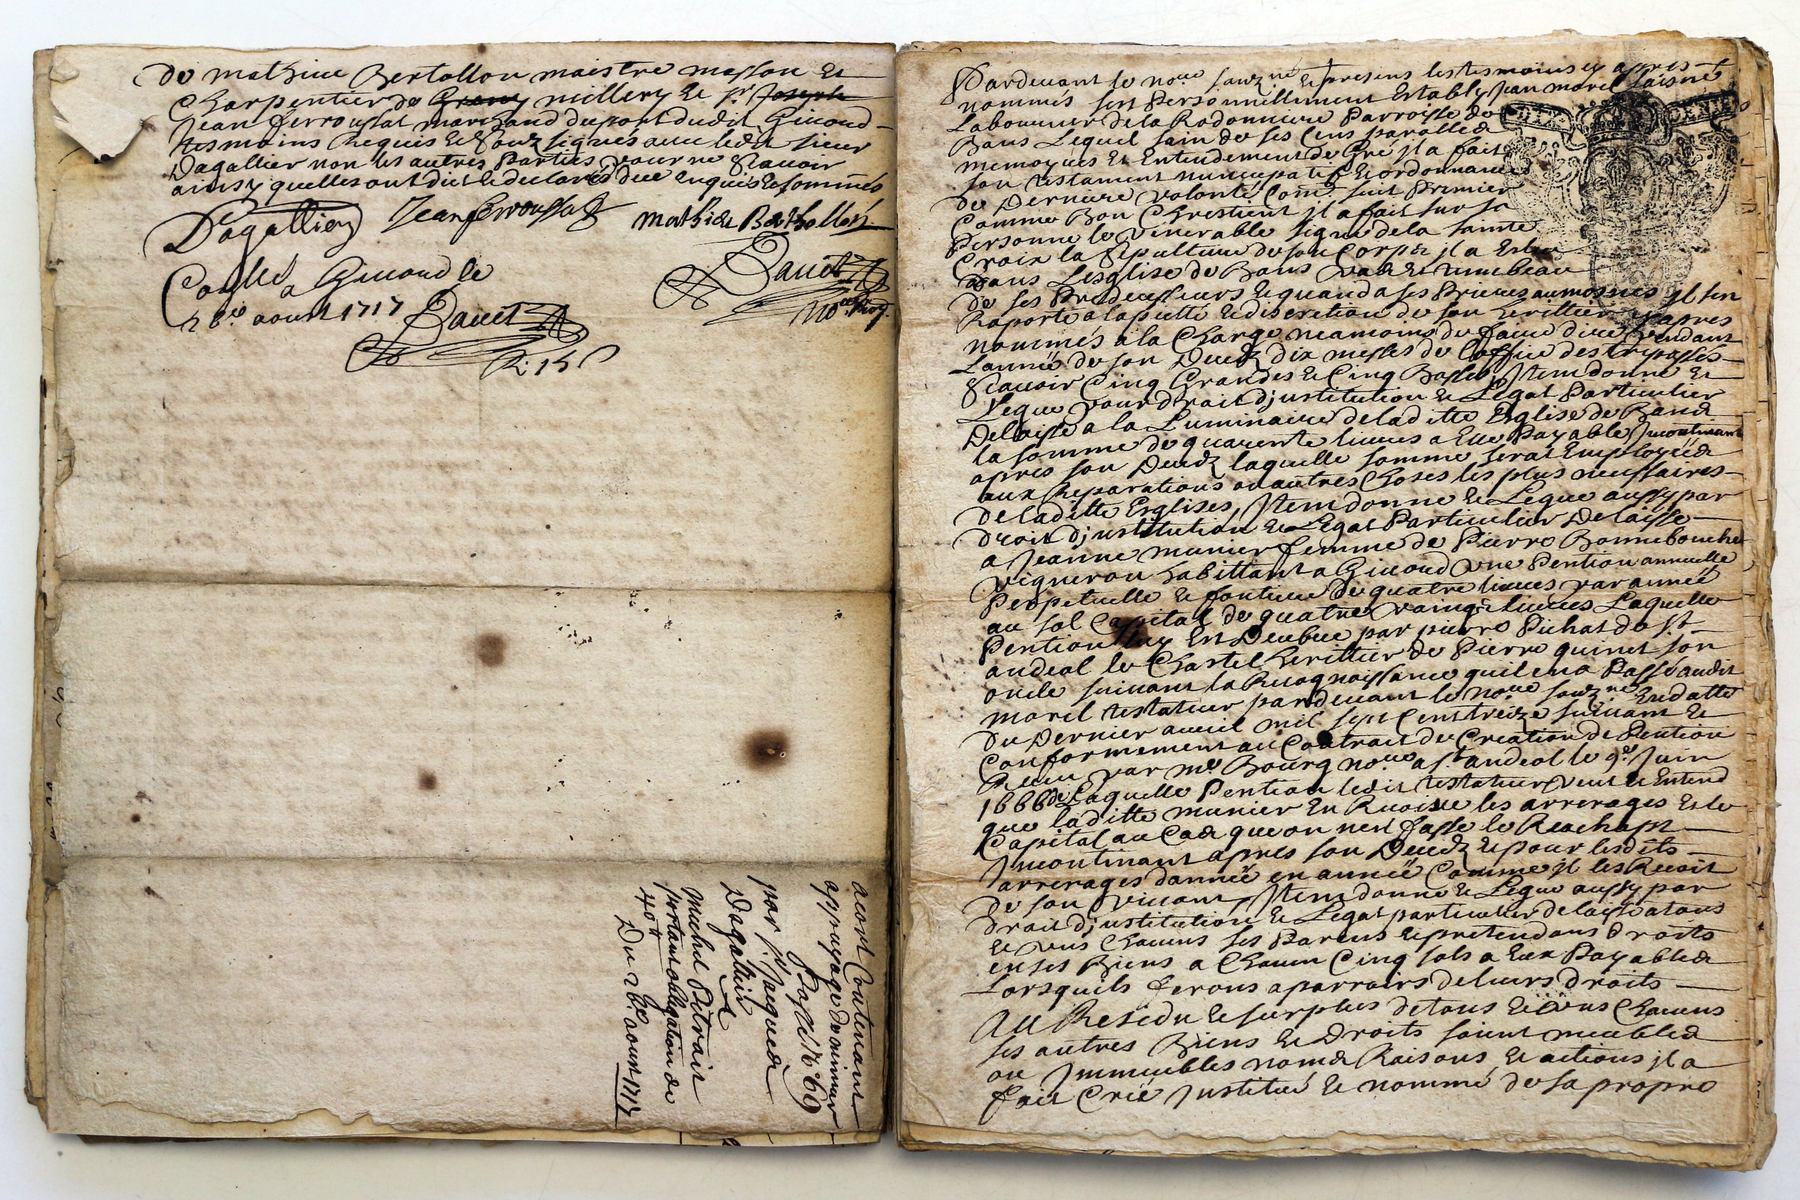 de mathieu Bertollon maistre masson Et
Charpentier de Grany millery Et sr Joseph
Jean ferroussat marchand du port dudit Giuord
tesmoins Requis Et soubzsignés auec ledit sieur
Dagallier non les autres Parties pour ne sçauoir
ainsy quelles ont dict Et declaré de ce Enquis Et sommés
Dagallier Jean ferroussat mathieu Bertollon
Dauet
nore Roy.
Conllé a Giuord le
26e aoust 1717 Dauet
R: 15 s
acort Contenant
appuyage de mineur
Passé N° 69
par sr Jacques
Dagallier
A
Michel Petrait
portant obligation de
40tt
Du 26e aoust 1717
Pardeuant le nore souzné Et presens les tesmoins cy apres
nommés fut Personnellement Estably Jean morel laisné
Laboureur de la Radonniere Parroisse de
Bans Lequel sain de ses Cens parolles
memoyres Et Entendement de Gré jl a fait
son testament nuncupatif Et ordonnance
de Derniere volonté Come suit Premier
Comme Bon Chrestient jl a fait sur sa
Personne le venerable signe de la sainte
Croix la sepulture de son Corps jl a Esleu
dans Lesglise de Bans vas Et tumbeau
de ses Predecesseurs Et quand a ses Prieres aumosnes jl sen
Raporte a la pietté Et discretion de son heritier cy apres
nommés a la Charge neamoins de faire dire Pendant
Lannée de son Decedz dix messes de Loffice des trepassés
sçauoir Cinq Grandes Et Cinq Basses, Jtem donne Et
Legue pour droit djnstitution Et Legat Particulier
Delaisse a la Luminaire de laditte Esglise de Bans
la somme de quarente liures a Elle Payable Jncontinant
apres son Decedz laquelle somme serat Employée
aux Reparations ou autres Choses les plus necessaires
de laditte Esglises, Jtem donne Et Legue aussy par
droit djnstitution Et Legat Particulier Delaisse
a Jeanne munier femme de Pierre Bonnebouche
vigneron habittant a Giuord vne Pention annuelle
Perpetuelle Et fontiere de quatre liures par année
au sol Capital de quatre vaingt liures Laquelle
Pention luy Est Deubue par pierre Pichat de St
andeol le Chastel heritier de Pierre quinet son
oncle suiuant la Recognoissance quil en a Passé audit
morel testateur pardeuant le nore souzné En datte
du Dernier aueril mil sept Cent treize suiuant Et
Conformement au Contrait de Creation de Pention
Receu par me Bourg nore a St andeol le 9e Juin
1666 de Laquelle Pention ledit testateur veut Et Entend
que laditte munier En Recoiue les arrerages Et le
Capital au Cas que on nen fasse le Reachapt
Jncontinant apres son Decedz Et pour lesdits
arrerages dannée en année Comme jl les Recoit
de son viuant, Jtem donne Et Legue aussy par
droit djnstitution Et Legat particulier delaisse a tous
Et vns Chacuns ses Parens Et pretendans droits
en ses Biens a Chacun Cinq sols a Eux Payables
Lorsquils feront aparroirs de leurs droits
Au Residu Et surplus de tous Et vns Chacuns
ses autres Biens Et Droits soient meubles
ou Jmmeubles noms Raisons Et actions jl a
fait Créé Jnstitué Et nommé de sa propre